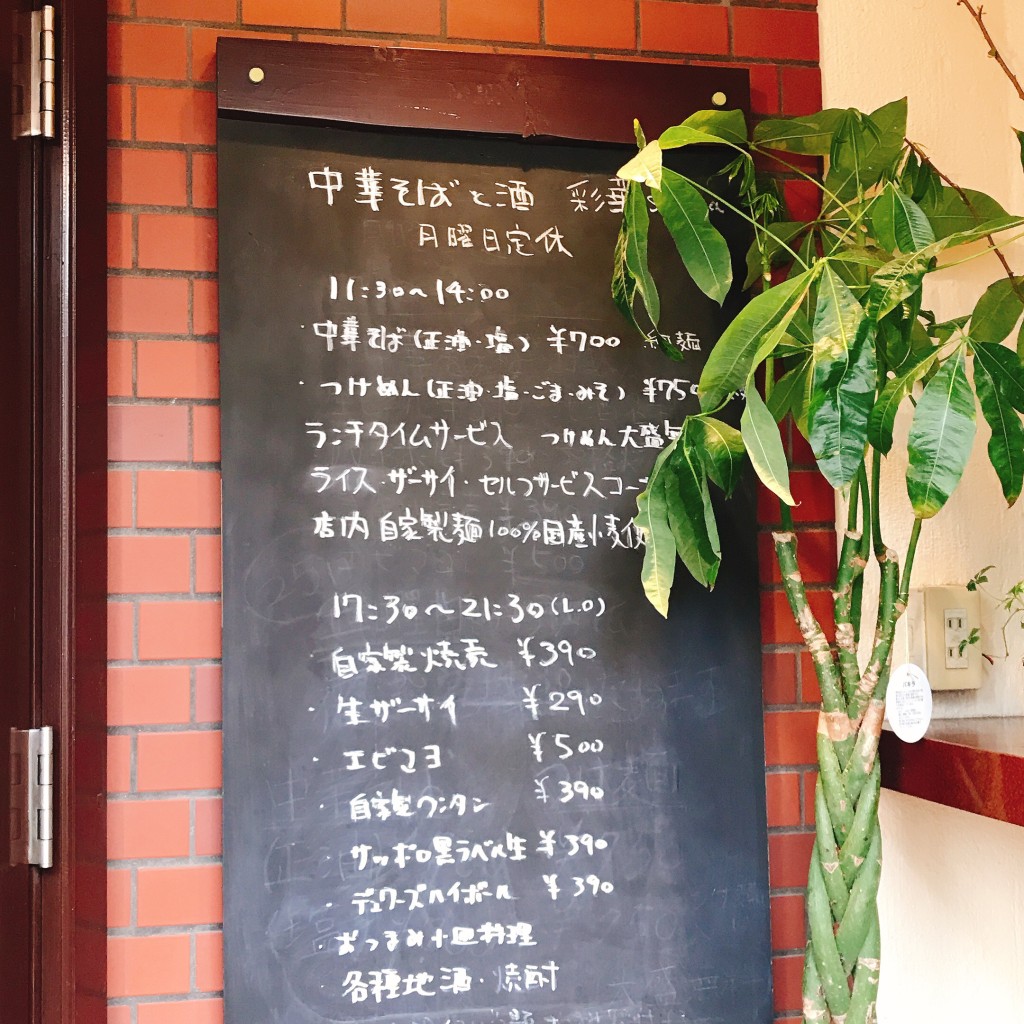 中華そばと酒 彩華
月曜日定休
11:30〜14:00
・中華そば(正油・塩) ¥700 麺
・つけめん(正油・塩・ごま・みそ) ¥750
ランチタイムサービス つけめん大盛無
ライス・ザーサイ・セルフサービスコー
店内自家製麺100%国産小麦使
17:30〜21:30(L.O)
自家製焼売 ¥390
・生ザーサイ ¥290
・エビマヨ ¥500
・自家製ワンタン ¥390
・サッポロ黒ラベル生 ¥390
・デュワーズハイボール ¥390
・おつまみ小皿料理
各種地酒・焼酎